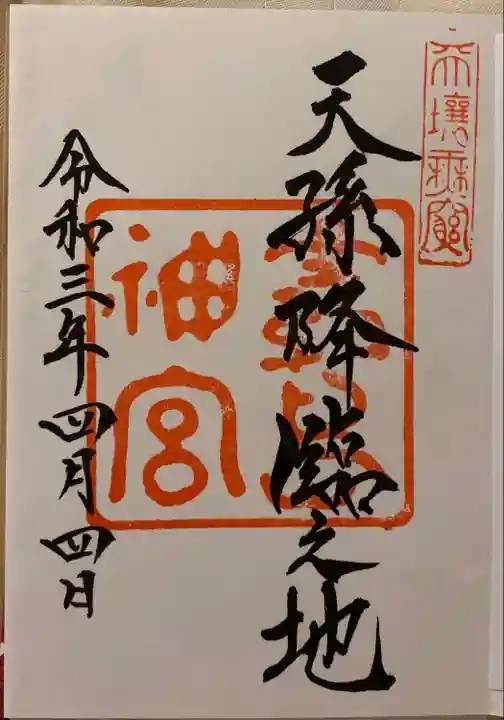 天壤無窮
天孫降臨之地
神宮
令和三年四月四日